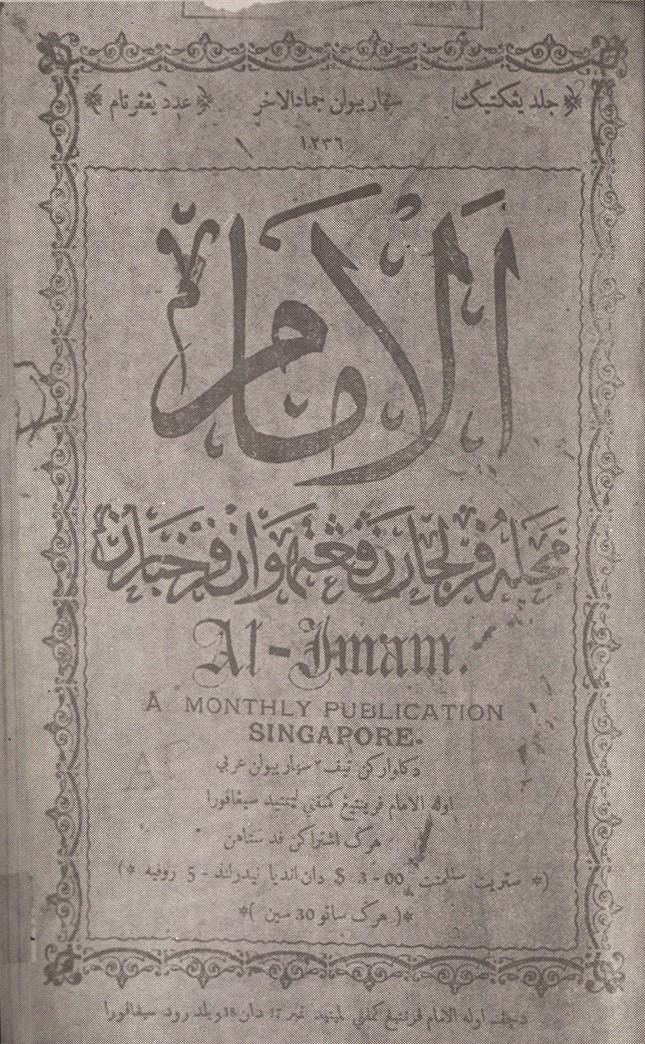 جلد يڠكتيݢ سهاريبولن جمادالاخر عدد يڠڤرتام
١٣٢٦
الامام
مجله ڤلجارن ڤڠتهوان ڤرخبارن
Al-Imam.
A MONTHLY PUBLICATION
SINGAPORE.
دكلواركن تيڤ٢ سهاريبولن عربي
اوله الامام ڤرينتيڠ كمڤني ليميتيد سيڠاڤورا
هرݢ اشتراكن ڤد ستاهن
(* ستريت ستلمنت $ 3-00 دان انديا نيدرلند - 5 روڤيه *)
*( هرݢ ساتو 30 سين )*
دچيتق اوله الامام ڤرنتيڠ كمڤني ليميتيد نمبر 17 دان 18 ويلد رود سيڠاڤورا